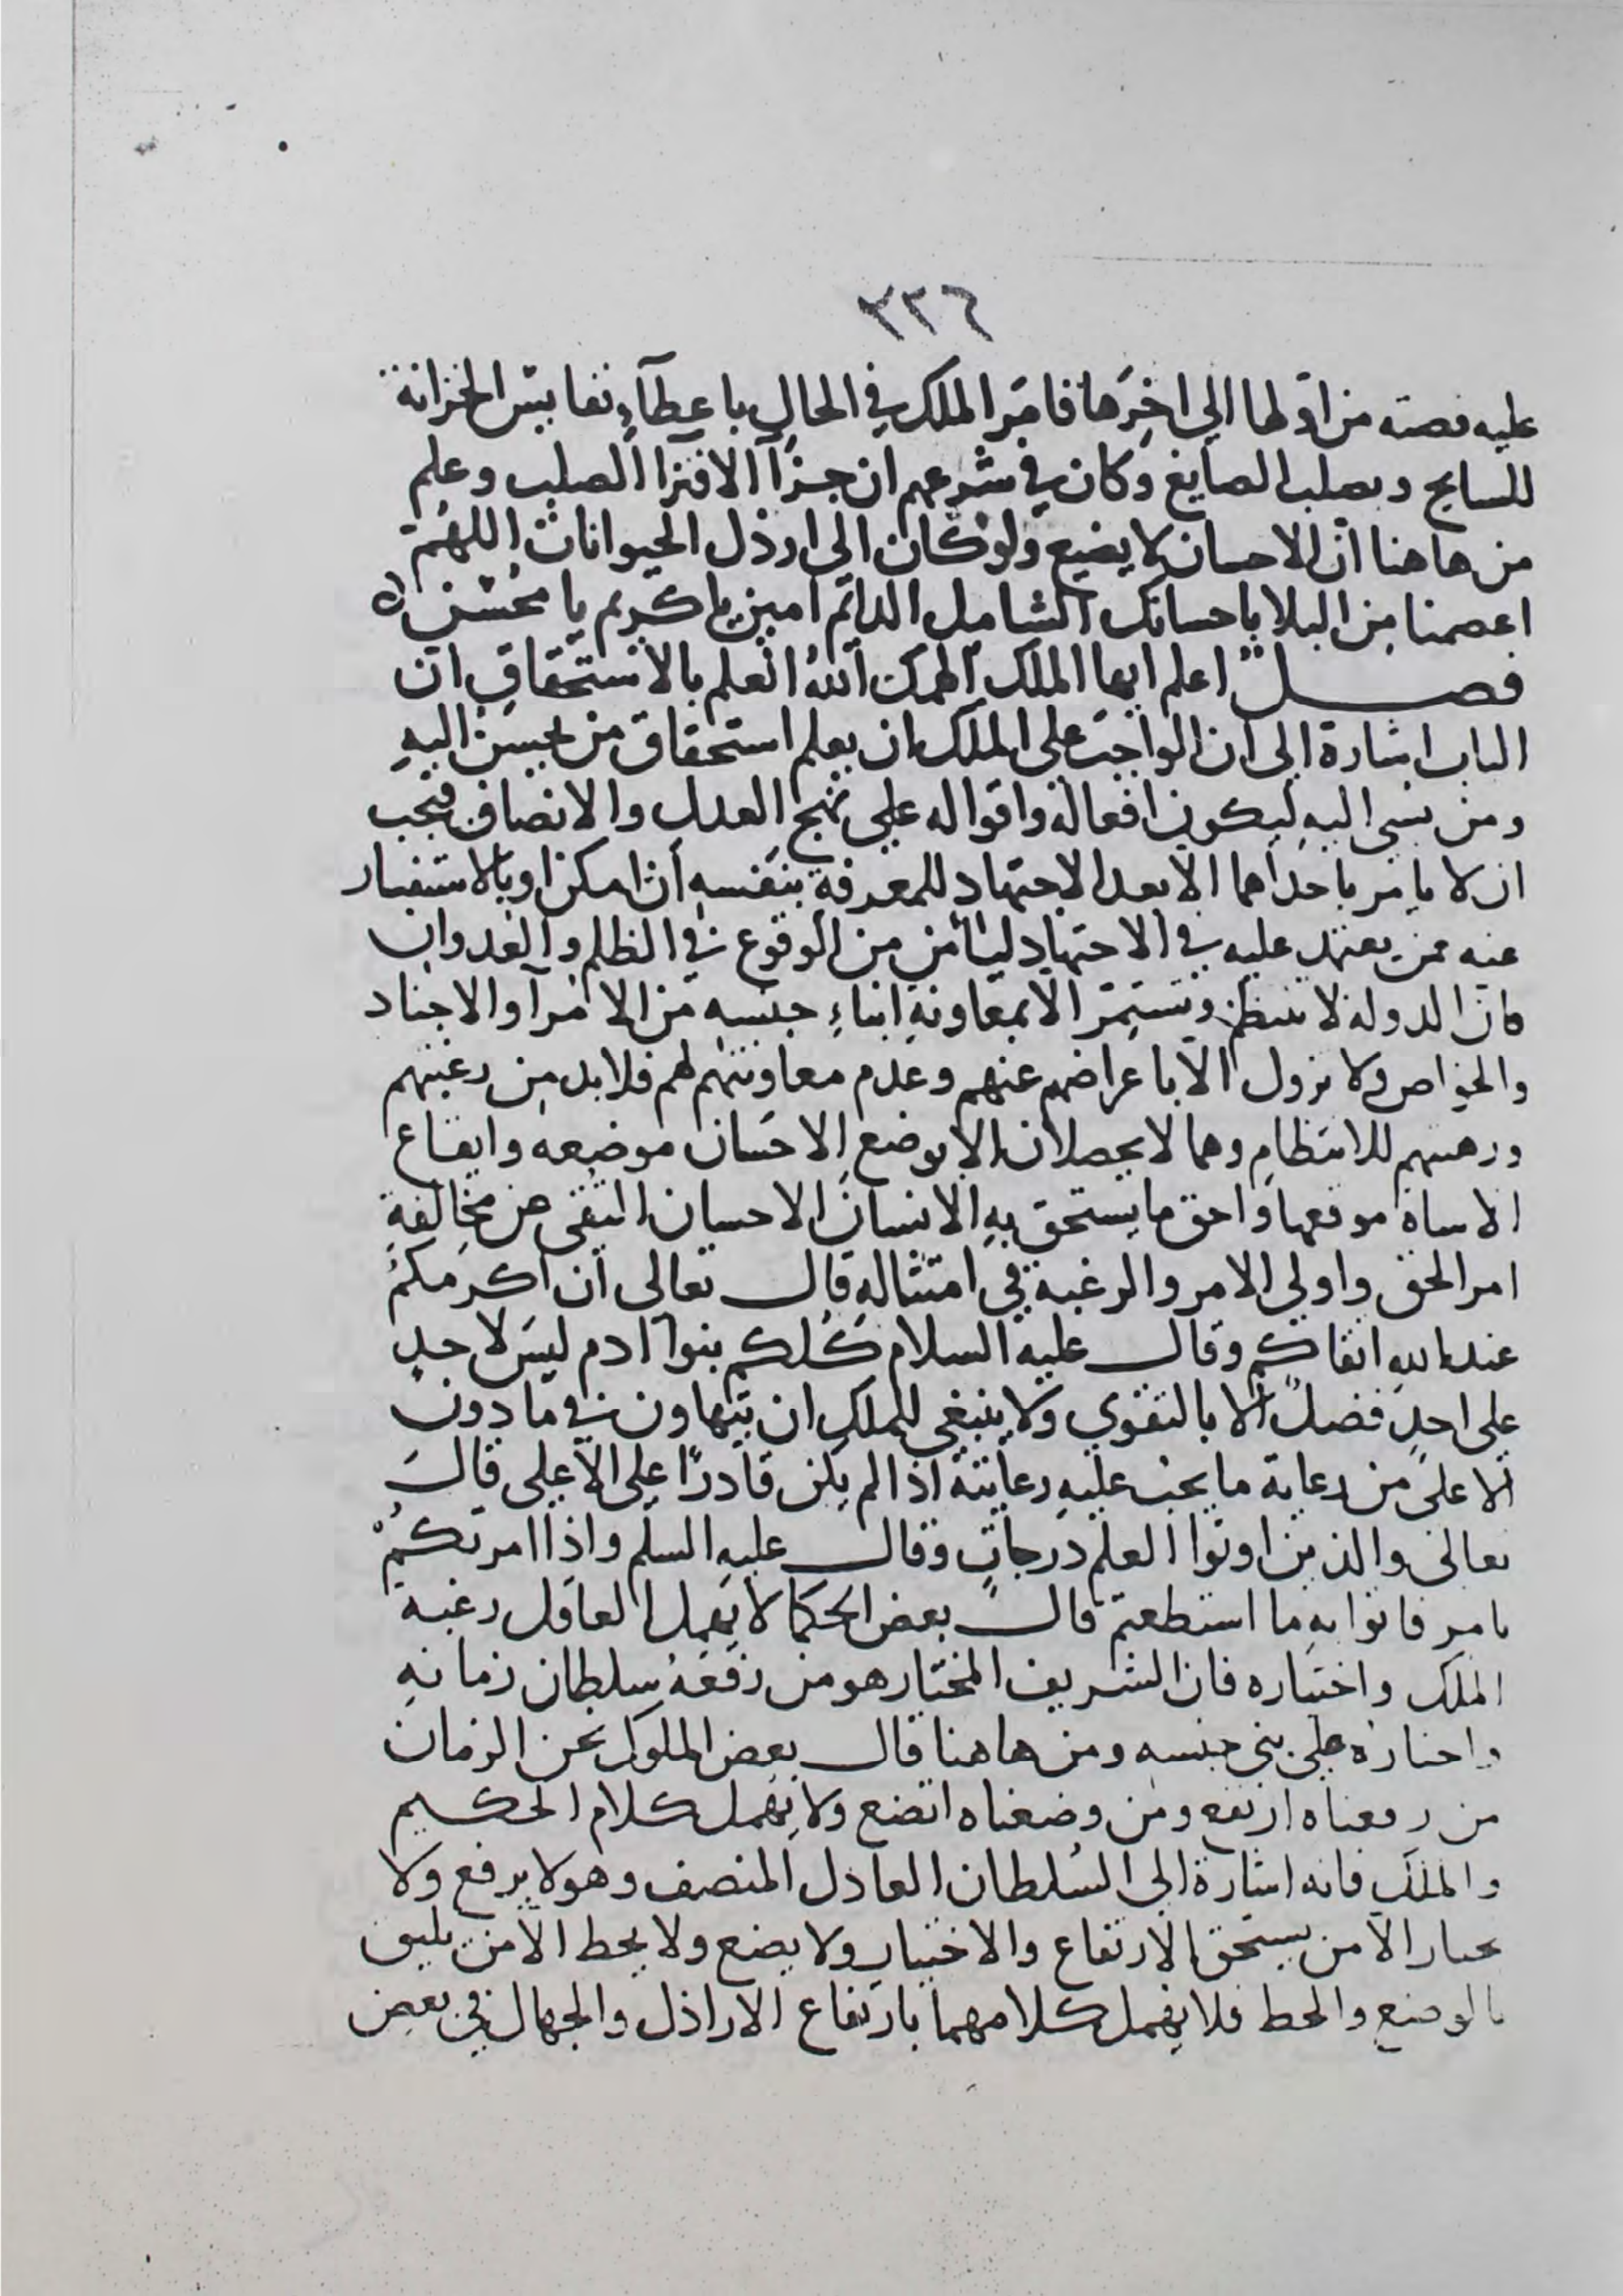 ٣٢٦
عليه قصته من اولها الي اخرها فامر الملك في الحال باعطآء نفايس الخزانة
للسايح وبصلب الصايغ وكان في شرعهم ان جزآ الافترا الصلب وعلم
من هاهنا ان الاحسان لا يضيع ولو كان الى ارذل الحيوانات اللهم
اعصمنا من البلا باحسانك الشامل الدايم امين يا كريم يا محسن
فصل اعلم ايها الملك الهمك الله العلم بالاستحقاق ان
الباب اشارة الى ان الواجب على الملك ان يعلم استحقاق من يحسن اليه
ومن يسي اليه ليكون افعاله واقواله على نهج العدل والانصاف فيجب
ان لا يامر باحداهما الا بعد الاجتهاد للمعرفة بنفسه ان امكن او بالاستفسار
عنه ممن يعتمد عليه في الاجتهاد ليامن من الوقوع في الظلم والعدوان
فان الدولة لا تنتظم وتستمر الا بمعاونة ابناء جنسه من الامرآ والاجناد
والخواص ولا تزول الا باعراضهم عنهم وعدم معاونتهم لهم فلا بد من رغبتهم
ورهبتهم للانتظام وهما لا يحصلان الا بوضع الاحسان موضعه وايقاع
الاساة موقعها واحق ما يستحق به الانسان الاحسان التقى عن مخالفة
امر الحق واولي الامر والرغبة في امتثاله قال تعالى ان اكرمكم
عند الله اتقاكم وقال عليه السلام كلكم بنوا ادم ليس لاحد
على احد فضل الا بالتقوي ولا ينبغي للملك ان يتهاون في ما دون
الاعلى من رعاية ما يجب عليه رعايته اذا لم يكن قادرًا على الاعلى قال
تعالى والذين اوتوا العلم درجات وقال عليه السلم واذا امرتكم
بامر فاتوا به ما استطعتم قال بعض الحكما لا يهمل العاقل رغبة
الملك واختياره فان الشريف المختار هو من رفعه سلطان زمانه
واختاره على بني جنسه ومن هاهنا قال بعض الملوك نحن الزمان
من رفعناه ارتفع ومن وضعناه اتضع ولا يهمل كلام الحكيم
والملك فانه اشارة الى السلطان العادل المنصف وهو لا يرفع ولا
يختار الا من يستحق الارتفاع والاختيار ولا يضع ولا يحط الا من يليق
بالوضع والحط فلا يهمل كلامهما بارتفاع الاراذل والجهال في بعض